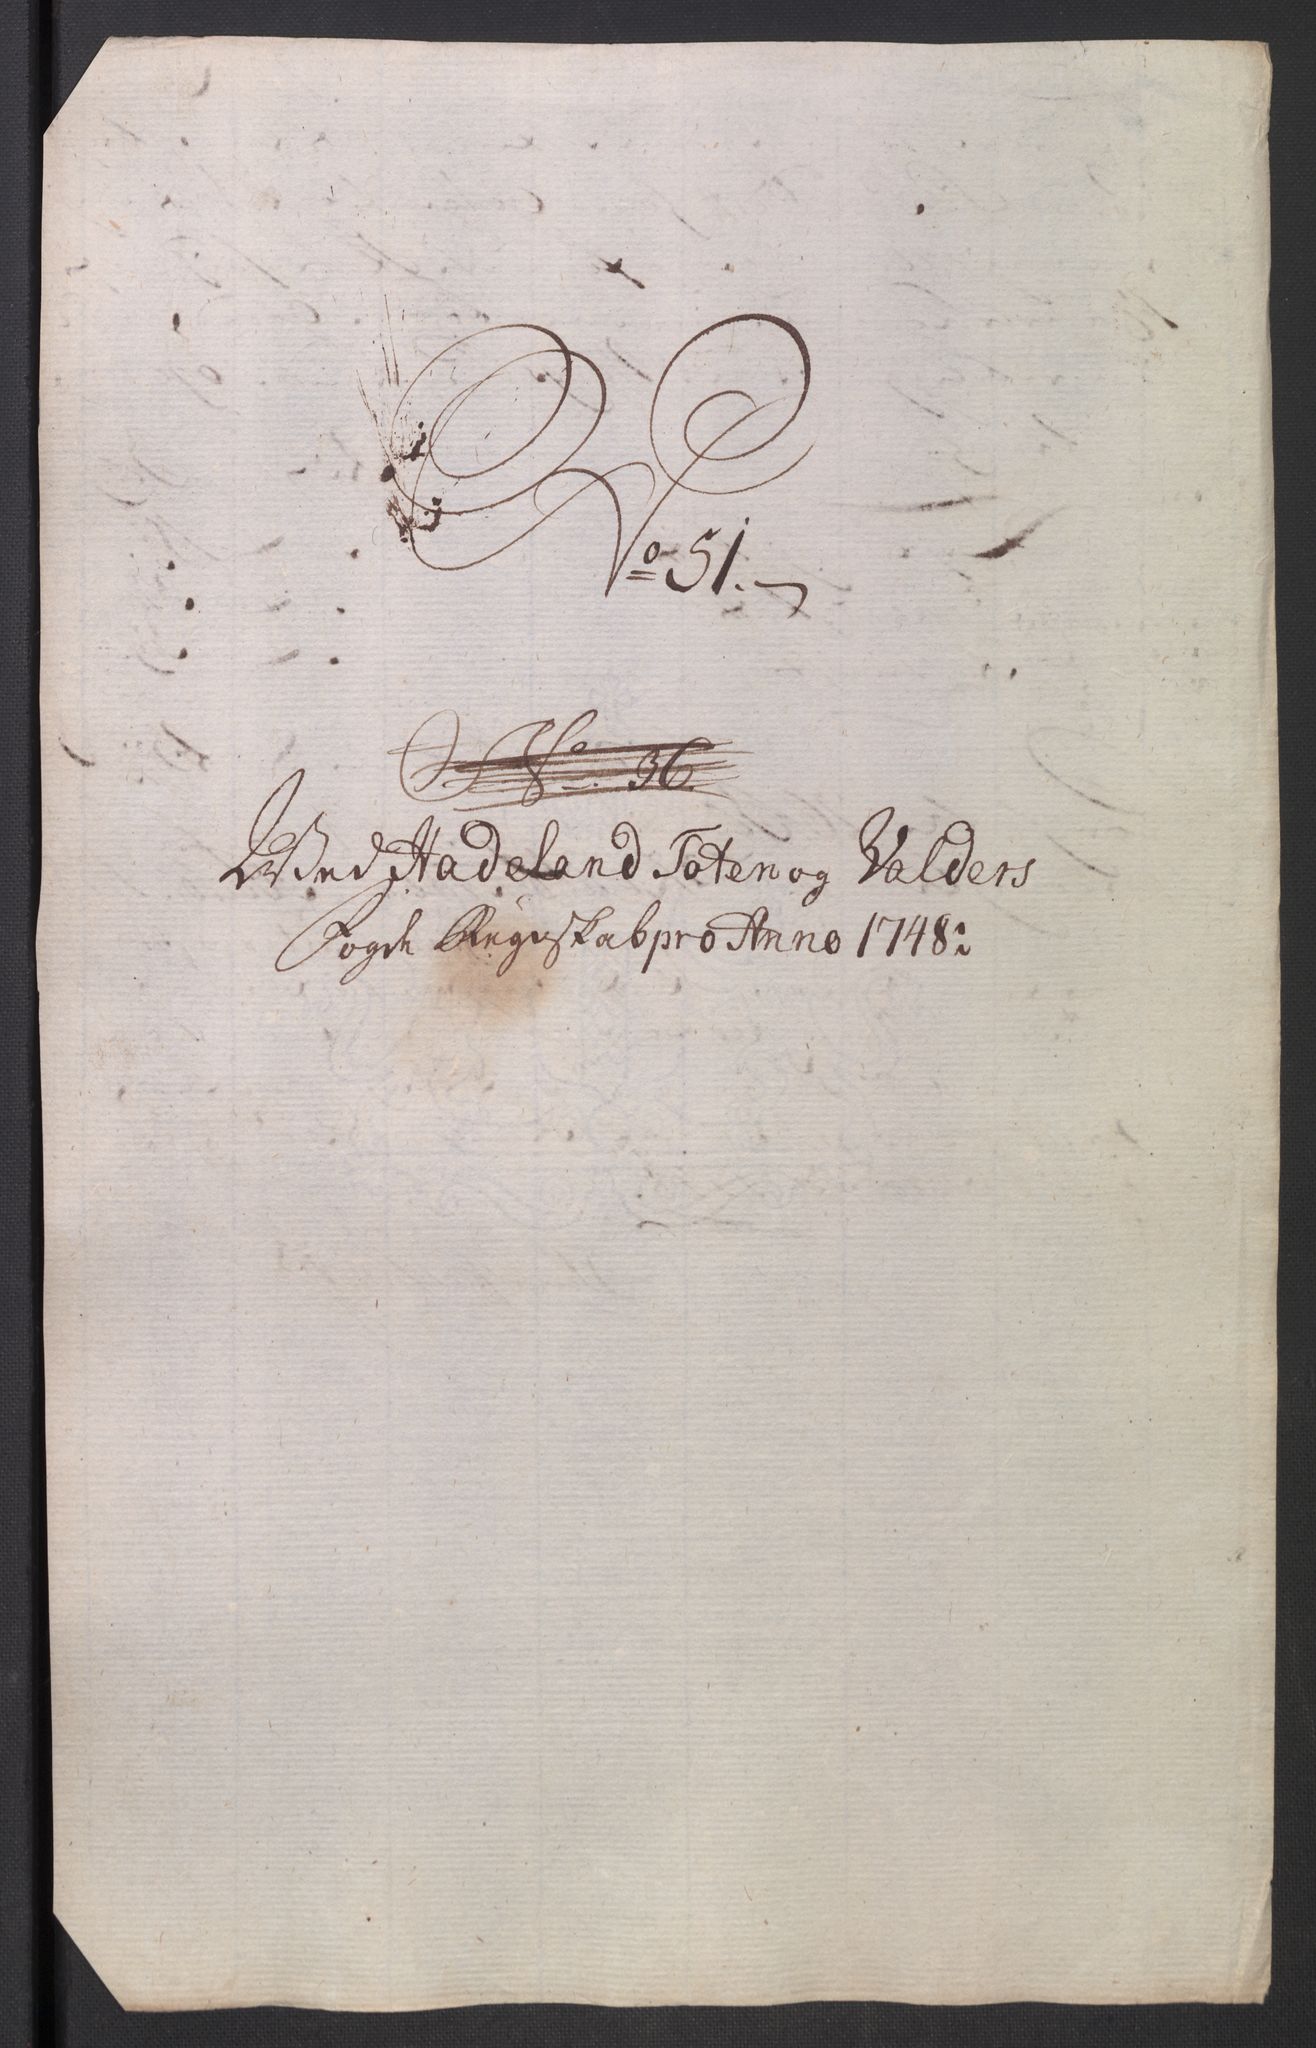 No 51.
No. 36.
Wed Hadeland Toten og Valders
Fogde Regnskab pro Anno 1748: